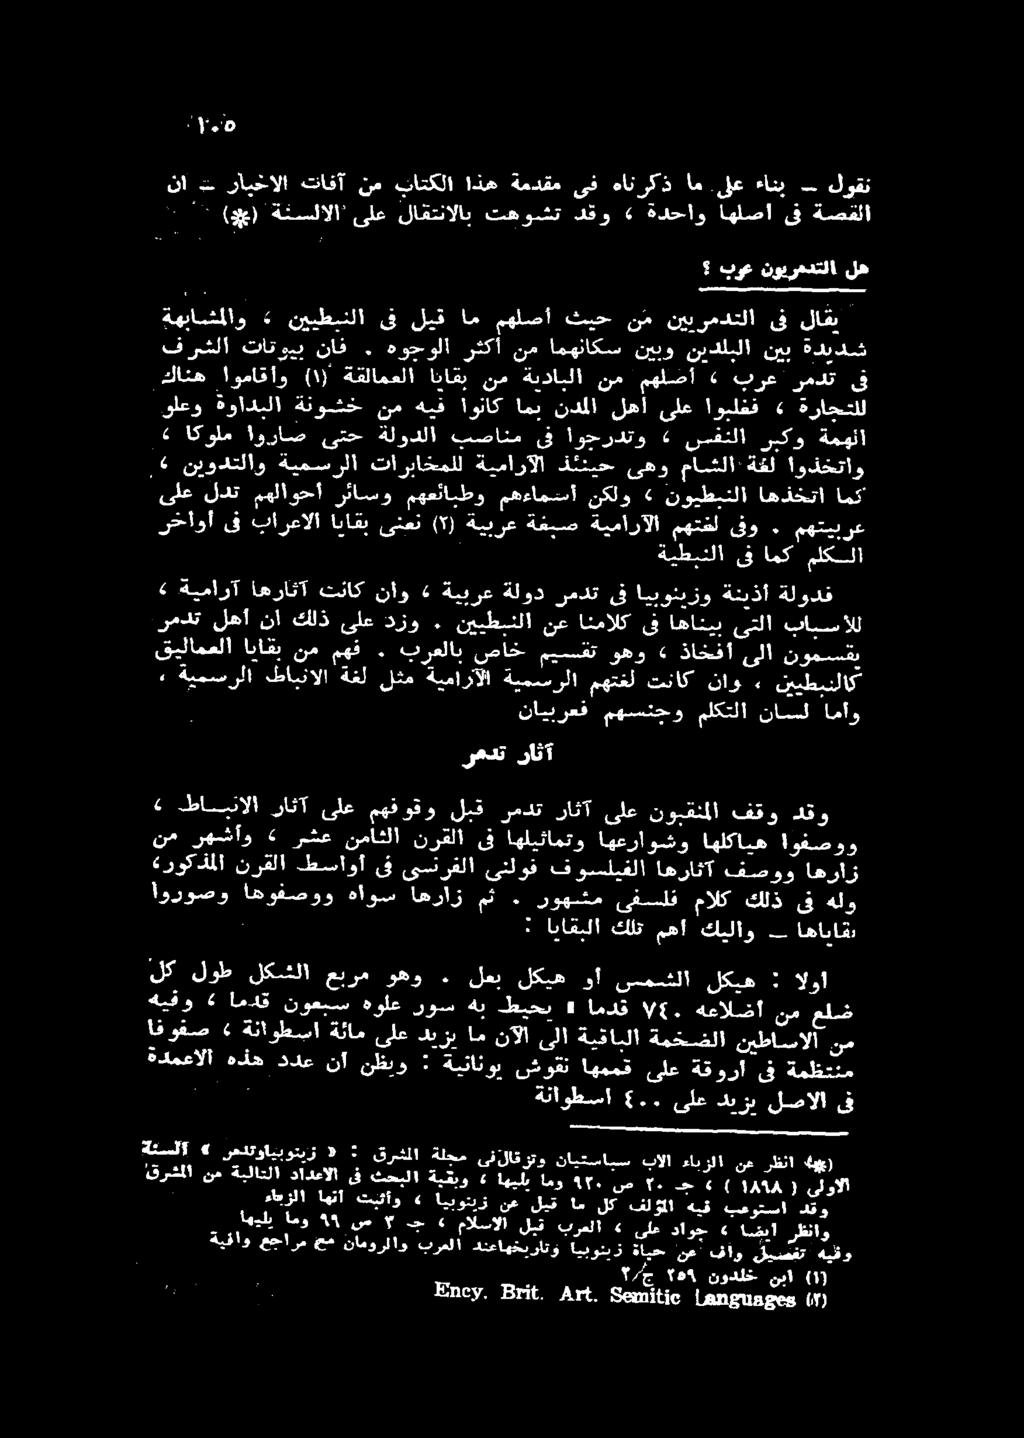 ١٠٥
نقول — بناء على ما ذكرناه فى مقدمة هذا الكتاب من آفات الاخبار — ان
القصة فى اصلها واحدة ، وقد تشوهت بالانتقال على الالسنة (*)
هل التدمريون عرب ؟
يقال فى التدمريين من حيث أصلهم ما قيل فى النبطيين ، والمشابهة
شديدة بين البلدين وبين سكانهما من أكثر الوجوه . فان بيوتات الشرف
فى تدمر عرب ، أصلهم من البادية من بقايا العمالقة (١) وأقاموا هناك
للتجارة ، فغلبوا على أهل المدن بما كانوا فيه من خشونة البداوة وعلو
الهمة وكبر النفس ، وتدرجوا فى مناصب الدولة حتى صاروا ملوكا ،
واتخذوا لغة الشام وهى حينئذ الآرامية للمخابرات الرسمية والتدوين ،
كما اتخذها النبطيون ، ولكن أسماءهم وطبائعهم وسائر أحوالهم تدل على
عربيتهم . وفى لغتهم الآرامية صبغة عربية (٢) نعنى بقايا الاعراب فى أواخر
الكلم كما فى النبطية
فدولة أذينة وزينوبيا فى تدمر دولة عربية ، وان كانت آثارها آرامية ،
للأسباب التى بيناها فى كلامنا عن النبطيين . وزد على ذلك ان أهل تدمر
يقسمون الى أفخاذ ، وهو تقسيم خاص بالعرب . فهم من بقايا العماليق
كالنبطيين ، وان كانت لغتهم الرسمية الآرامية مثل لغة الانباط الرسمية ،
وأما لسان التكلم وجنسهم فعربيان
آثار تدمر
وقد وقف المنقبون على آثار تدمر قبل وقوفهم على آثار الانباط ،
ووصفوا هياكلها وشوارعها وتماثيلها فى القرن الثامن عشر ، وأشهر من
زارها ووصف آثارها الفيلسوف فولنى الفرنسى فى أواسط القرن المذكور،
وله فى ذلك كلام فلسفى مشهور . ثم زارها سواه ووصفوها وصوروا
بقاياها — واليك أهم تلك البقايا :
أولا : هيكل الشمس أو هيكل بعل . وهو مربع الشكل طول كل
ضلع من أضلاعه ٧٤٠ قدما يحيط به سور علوه سبعون قدما ، وفيه
من الاساطين الضخمة الباقية الى الآن ما يزيد على مائة اسطوانة ، صفوفا
منتظمة فى أروقة على قممها نقوش يونانية : ويظن أن عدد هذه الاعمدة
فى الاصل يزيد على ٤٠٠ اسطوانة
(*) انظر عن الزباء الاب سباستيان رتزفال فى مجلة المشرق : « زينوبيا وتدمر » السنة
الاولى ( ١٨٩٨ ) ، جـ ٢٠ ص ٩٢٠ وما يليها ، وبقية البحث فى الاعداد التالية من المشرق
وقد استوعب فيه المؤلف كل ما قيل عن زينوبيا ، وأثبت أنها الزباء
وانظر أيضا ، جواد على ، العرب قبل الاسلام ، جـ ٣ ص ٩٩ وما يليها
وفيه تفصيل واف عن حياة زينوبيا وتاريخها عند العرب والرومان مع مراجع وافية
(١) ابن خلدون ٢٥٩ ج/٢
(٢) Ency. Brit. Art. Semitic Languages